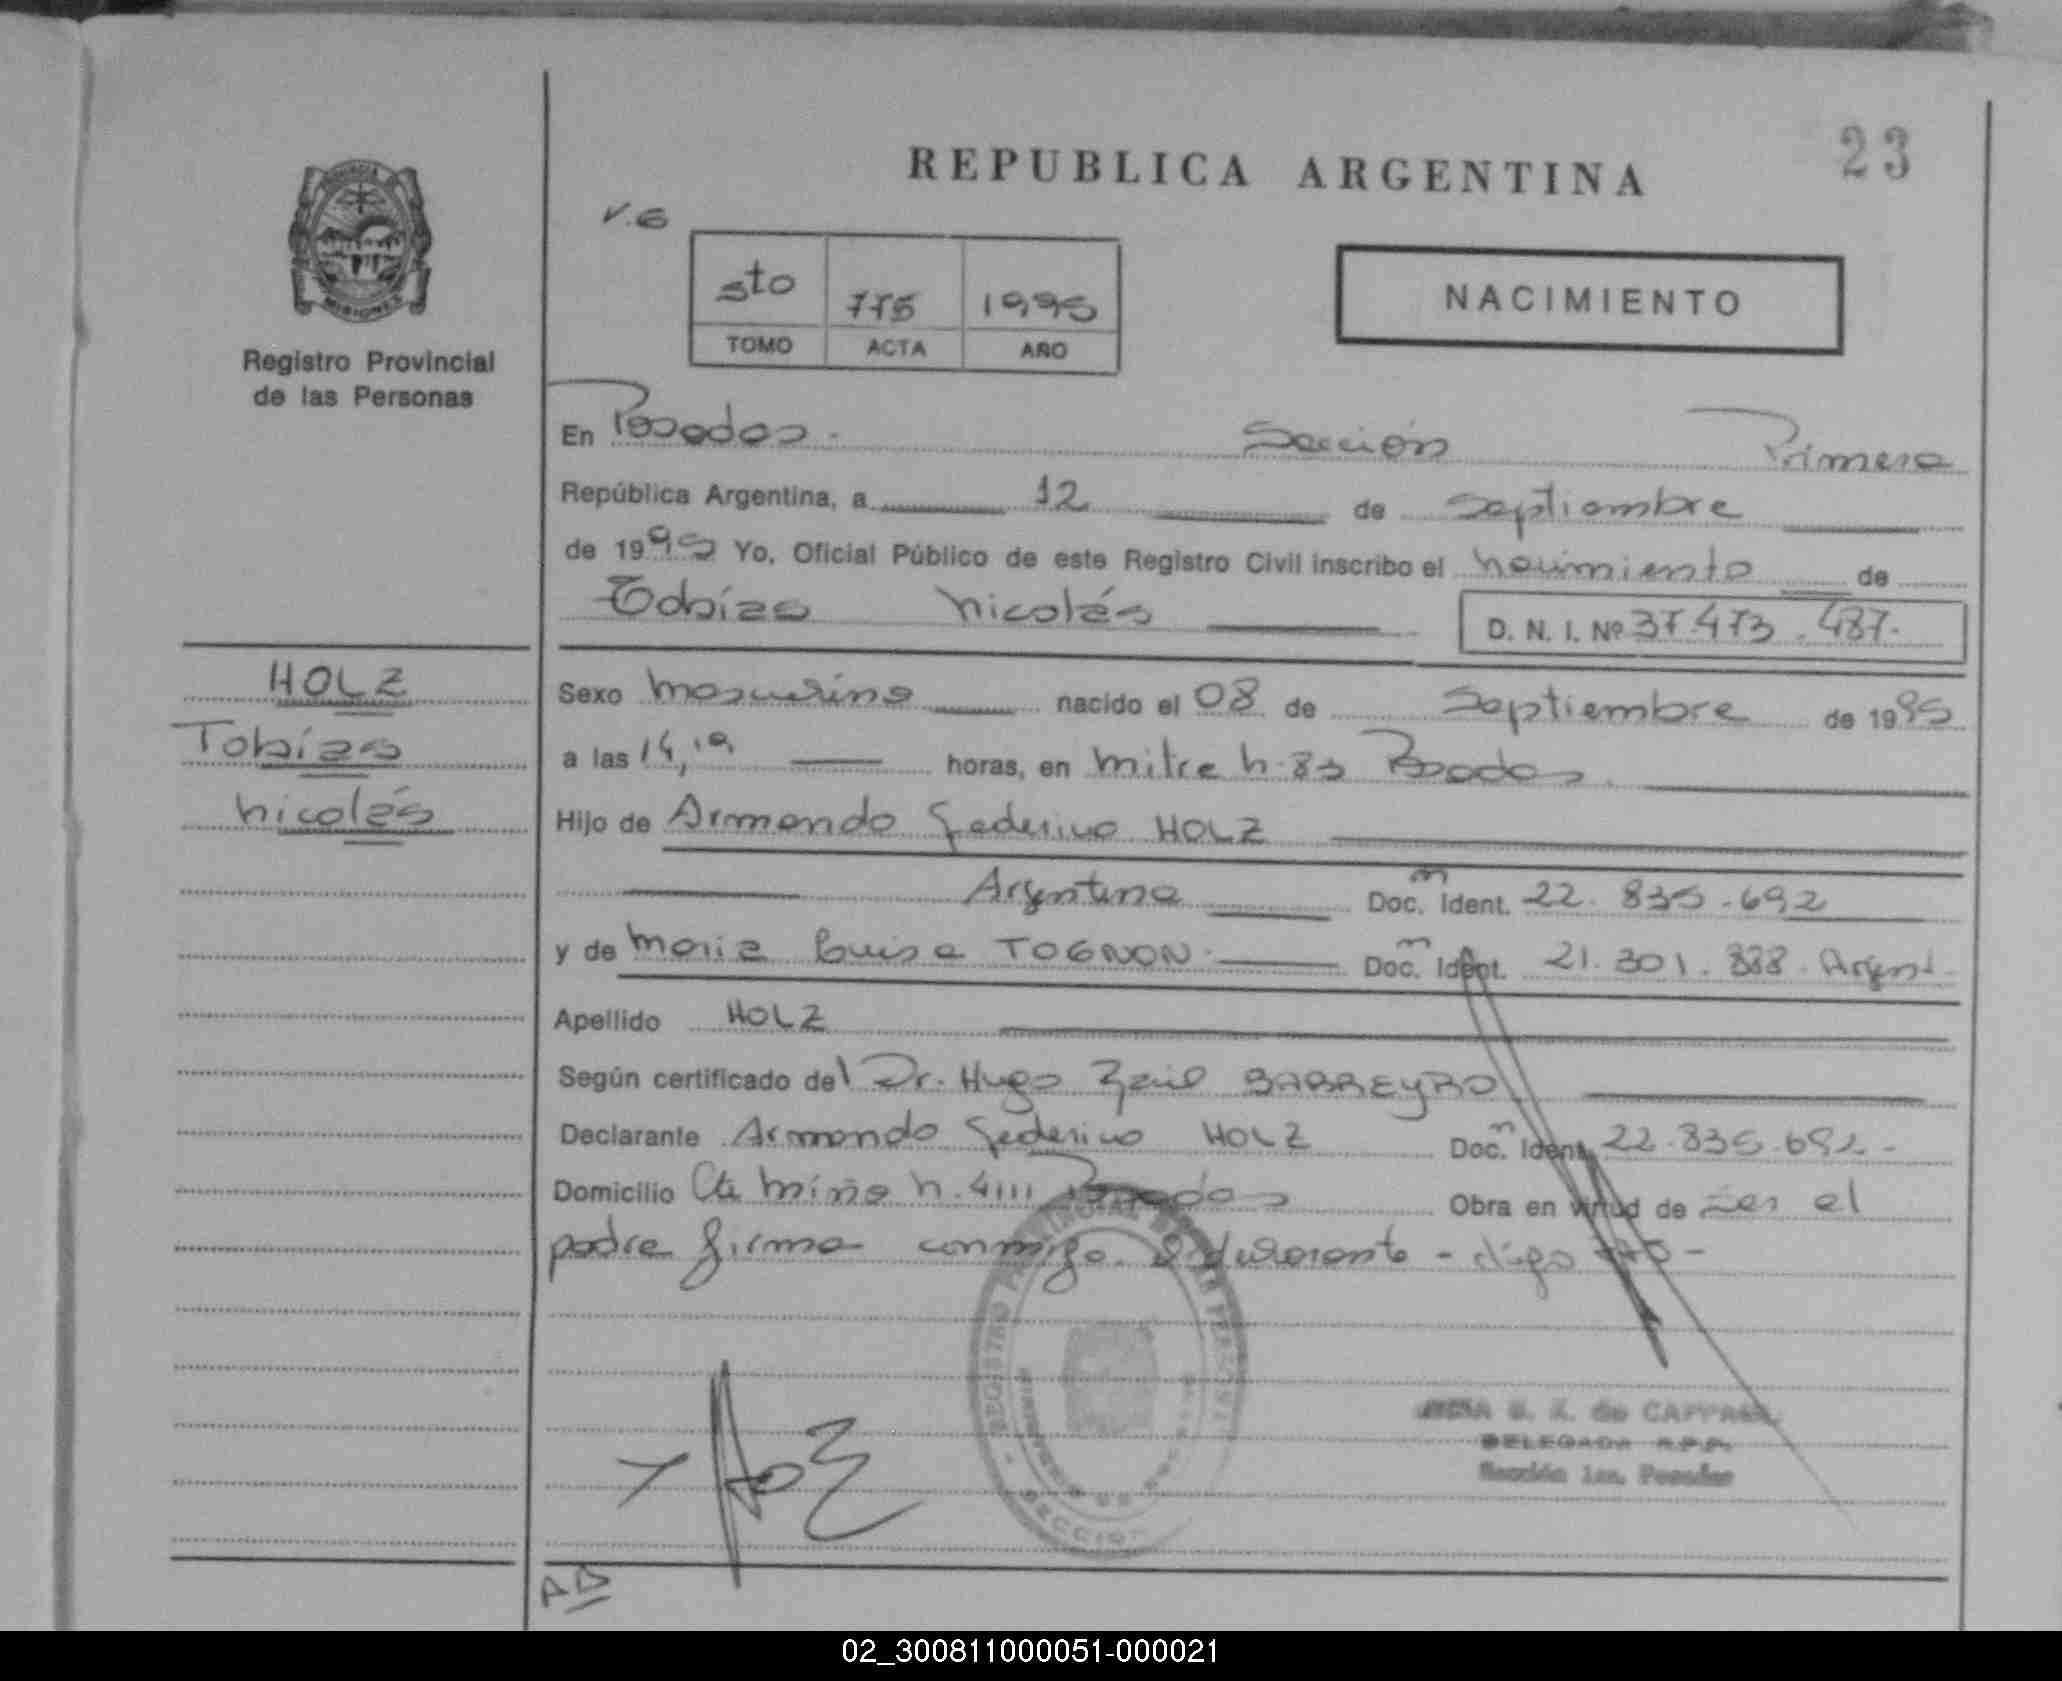 23
REPUBLICA ARGENTINA
V.E
5to 775 1995
TOMO ACTA AÑO
NACIMIENTO
MISIONES
Registro Provincial
de las Personas
En Posadas - Sección Primera
República Argentina, a 12 de Septiembre
de 1995 Yo, Oficial Público de este Registro Civil inscribo el nacimiento de
Tobías Nicolás D. N. I. Nº 37.473.487.
HOLZ
Tobías
Nicolás
Sexo masculino nacido el 08 de Septiembre de 1995
a las 14,10 horas, en Mitre N. 83 Posadas
Hijo de Armando Federico HOLZ
Argentina Doc. Ident. 22.835.692
y de María Luisa TOGNON. Doc. Ident. 21.301.888. Argent.
Apellido HOLZ
Según certificado del Dr. Hugo BARREYRO
Declarante Armando Federico HOLZ Doc. Ident. 22.835.692-
Domicilio N. 4111 Posadas Obra en virtud de ser el
padre firma conmigo. el declarante - digo
REGISTRO PROVINCIAL DE LAS PERSONAS
de CAPPA
DELEGADA R.P.P.
Sección 1ra. Posadas
HOLZ
AB
02_300811000051-000021